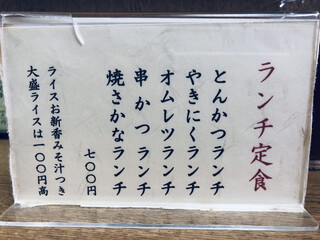 ランチ定食
とんかつランチ
やきにくランチ
オムレツランチ
串かつランチ
焼さかなランチ
七〇〇円
ライスお新香みそ汁つき
大盛ライスは一〇〇円高